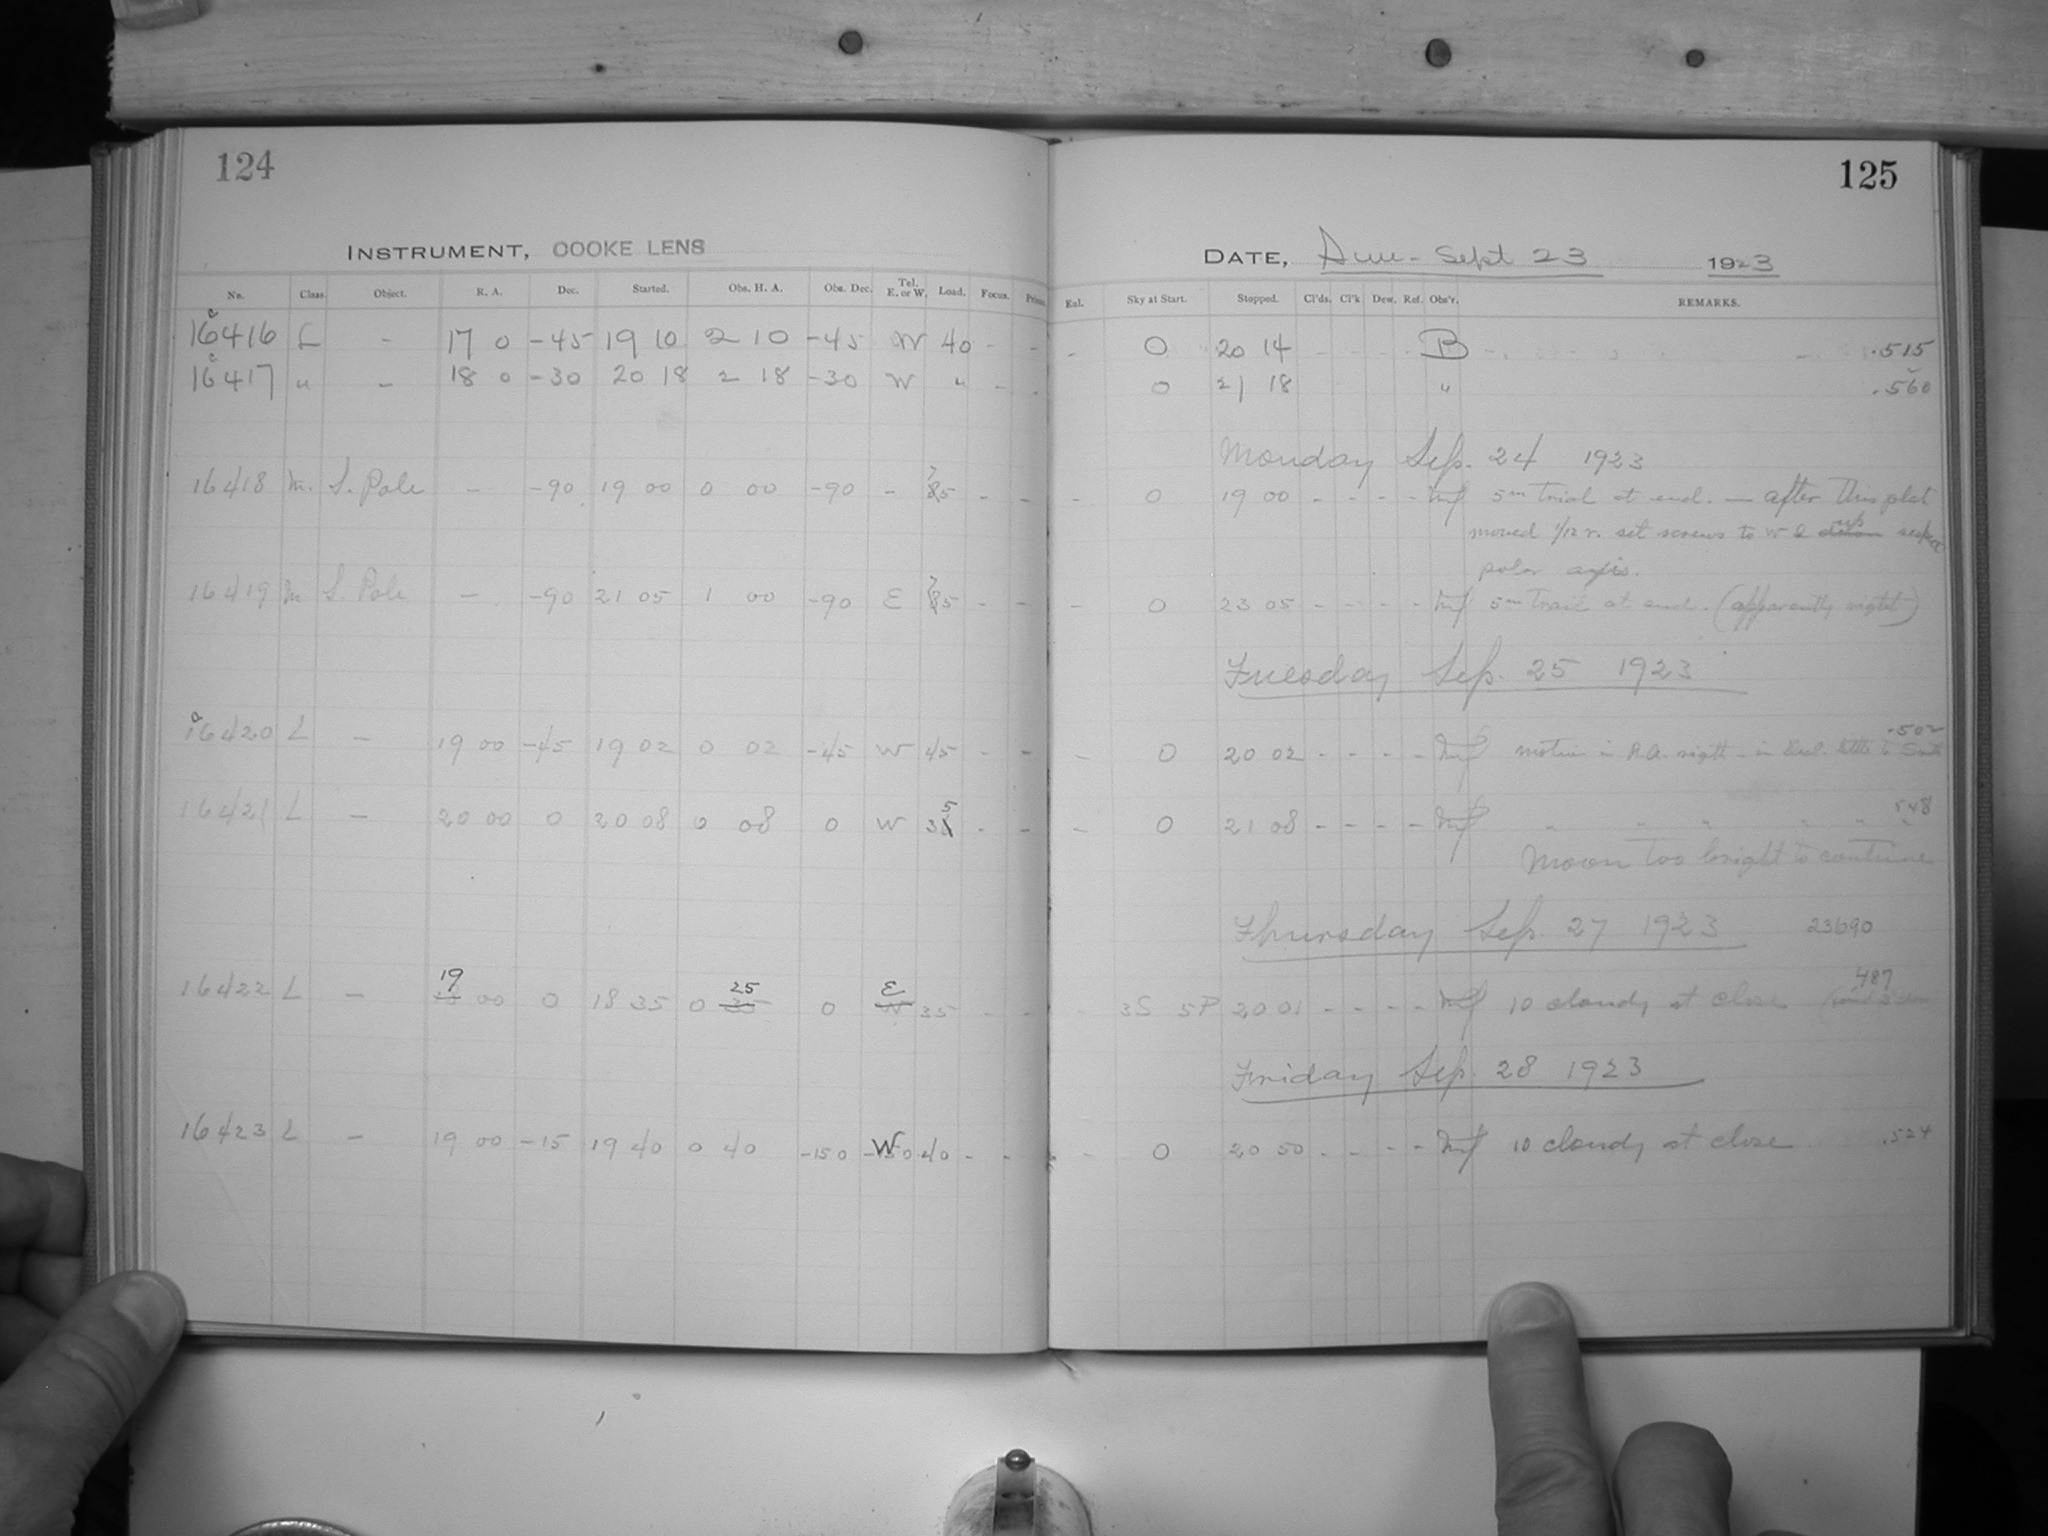 124
INSTRUMENT, COOKE LENS
No. Class. Object. R. A. Dec. Started. Obs. H. A. Obs. Dec. Tel. E. or W. Load. Focus.
c
16416 L - 17 0 -45 19 10 2 10 -45 W 40 - -
c
16417 " - 18 0 -30 20 18 2 18 -30 W " -
16418 M. S. Pole - -90 19 00 0 00 -90 - 7 85 - -
16419 M S. Pole - -90 21 05 1 00 -90 E 7 85 - -
a
16420 L - 19 00 -45 19 02 0 02 -45 W 45 - -
16421 L - 20 00 0 20 08 0 08 0 W 35 - -
16422 L - 19 00 0 18 35 0 25 35 0 E W 35 - -
16423 L - 19 00 -15 19 40 0 40 -15 0 W 40 - -
125
DATE, Sun - Sept 23 1923
Eal. Sky at Start. Stopped. Cl'ds. Cl'k Dew. Ref. Obs'r. REMARKS.
- 0 20 14 B .515
0 21 18 " .560
Monday Sep. 24 1923
- 0 19 00 - - - - 5m trail at end. — after this plat
moved 1/12 r. set screws to W & down up
polar axis.
- 0 23 05 - - - - 5m Trail at end. (apparently right)
Tuesday Sep. 25 1923
.502
- 0 20 02 - - - - motion in R.A. right - in Decl. little to South
- 0 21 08 - - - - " " " " " "
Moon too bright to continue
Thursday Sep. 27 1923 23690
.487
- 3S 5P 20 01 - - - - 10 cloudy at close
Friday Sep. 28 1923
- 0 20 50 - - - - 10 cloudy at close .524